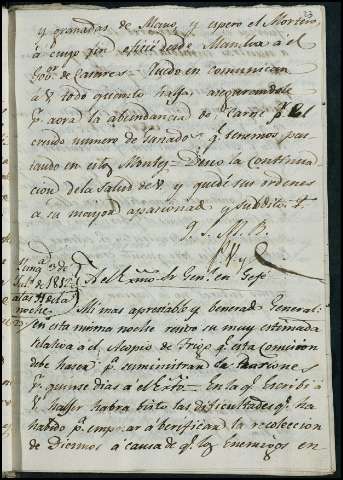 y granadas de Mano, y espero el Mortero,
á cuyo fin escribi desde Mamba á el
Gov. de Caceres = Cuido en comunicar
á V. todo quanto halla, asegurandole
p.r aora la abundancia de carne p.r el
crecido numero de ganados q.e tenemos pas
tando en estos Montes = Deseo la continua
cion de la salud de V. y quede sus ordenes
a su mayor apasionad. y subdito. =
Q. S. M. B.
3 de
Jul.o de 1812
a las 11 de la
noche
A el Exmo Sr Gen.l en Gefe
Mi mas apreciable y benerado General:
en esta misma noche recivo su muy estimada
relativa á el Acopio de trigo q.e esta Comicion
debe haser p.a suministrar la raciones
p.r quinse dias á el Exto = En la q.e escribi á
V. haller habra bisto las dificultades q.e ha
habido p.a empesar á berificar la recoleccion
de Diesmos á causa de q.e los Enemigos en=